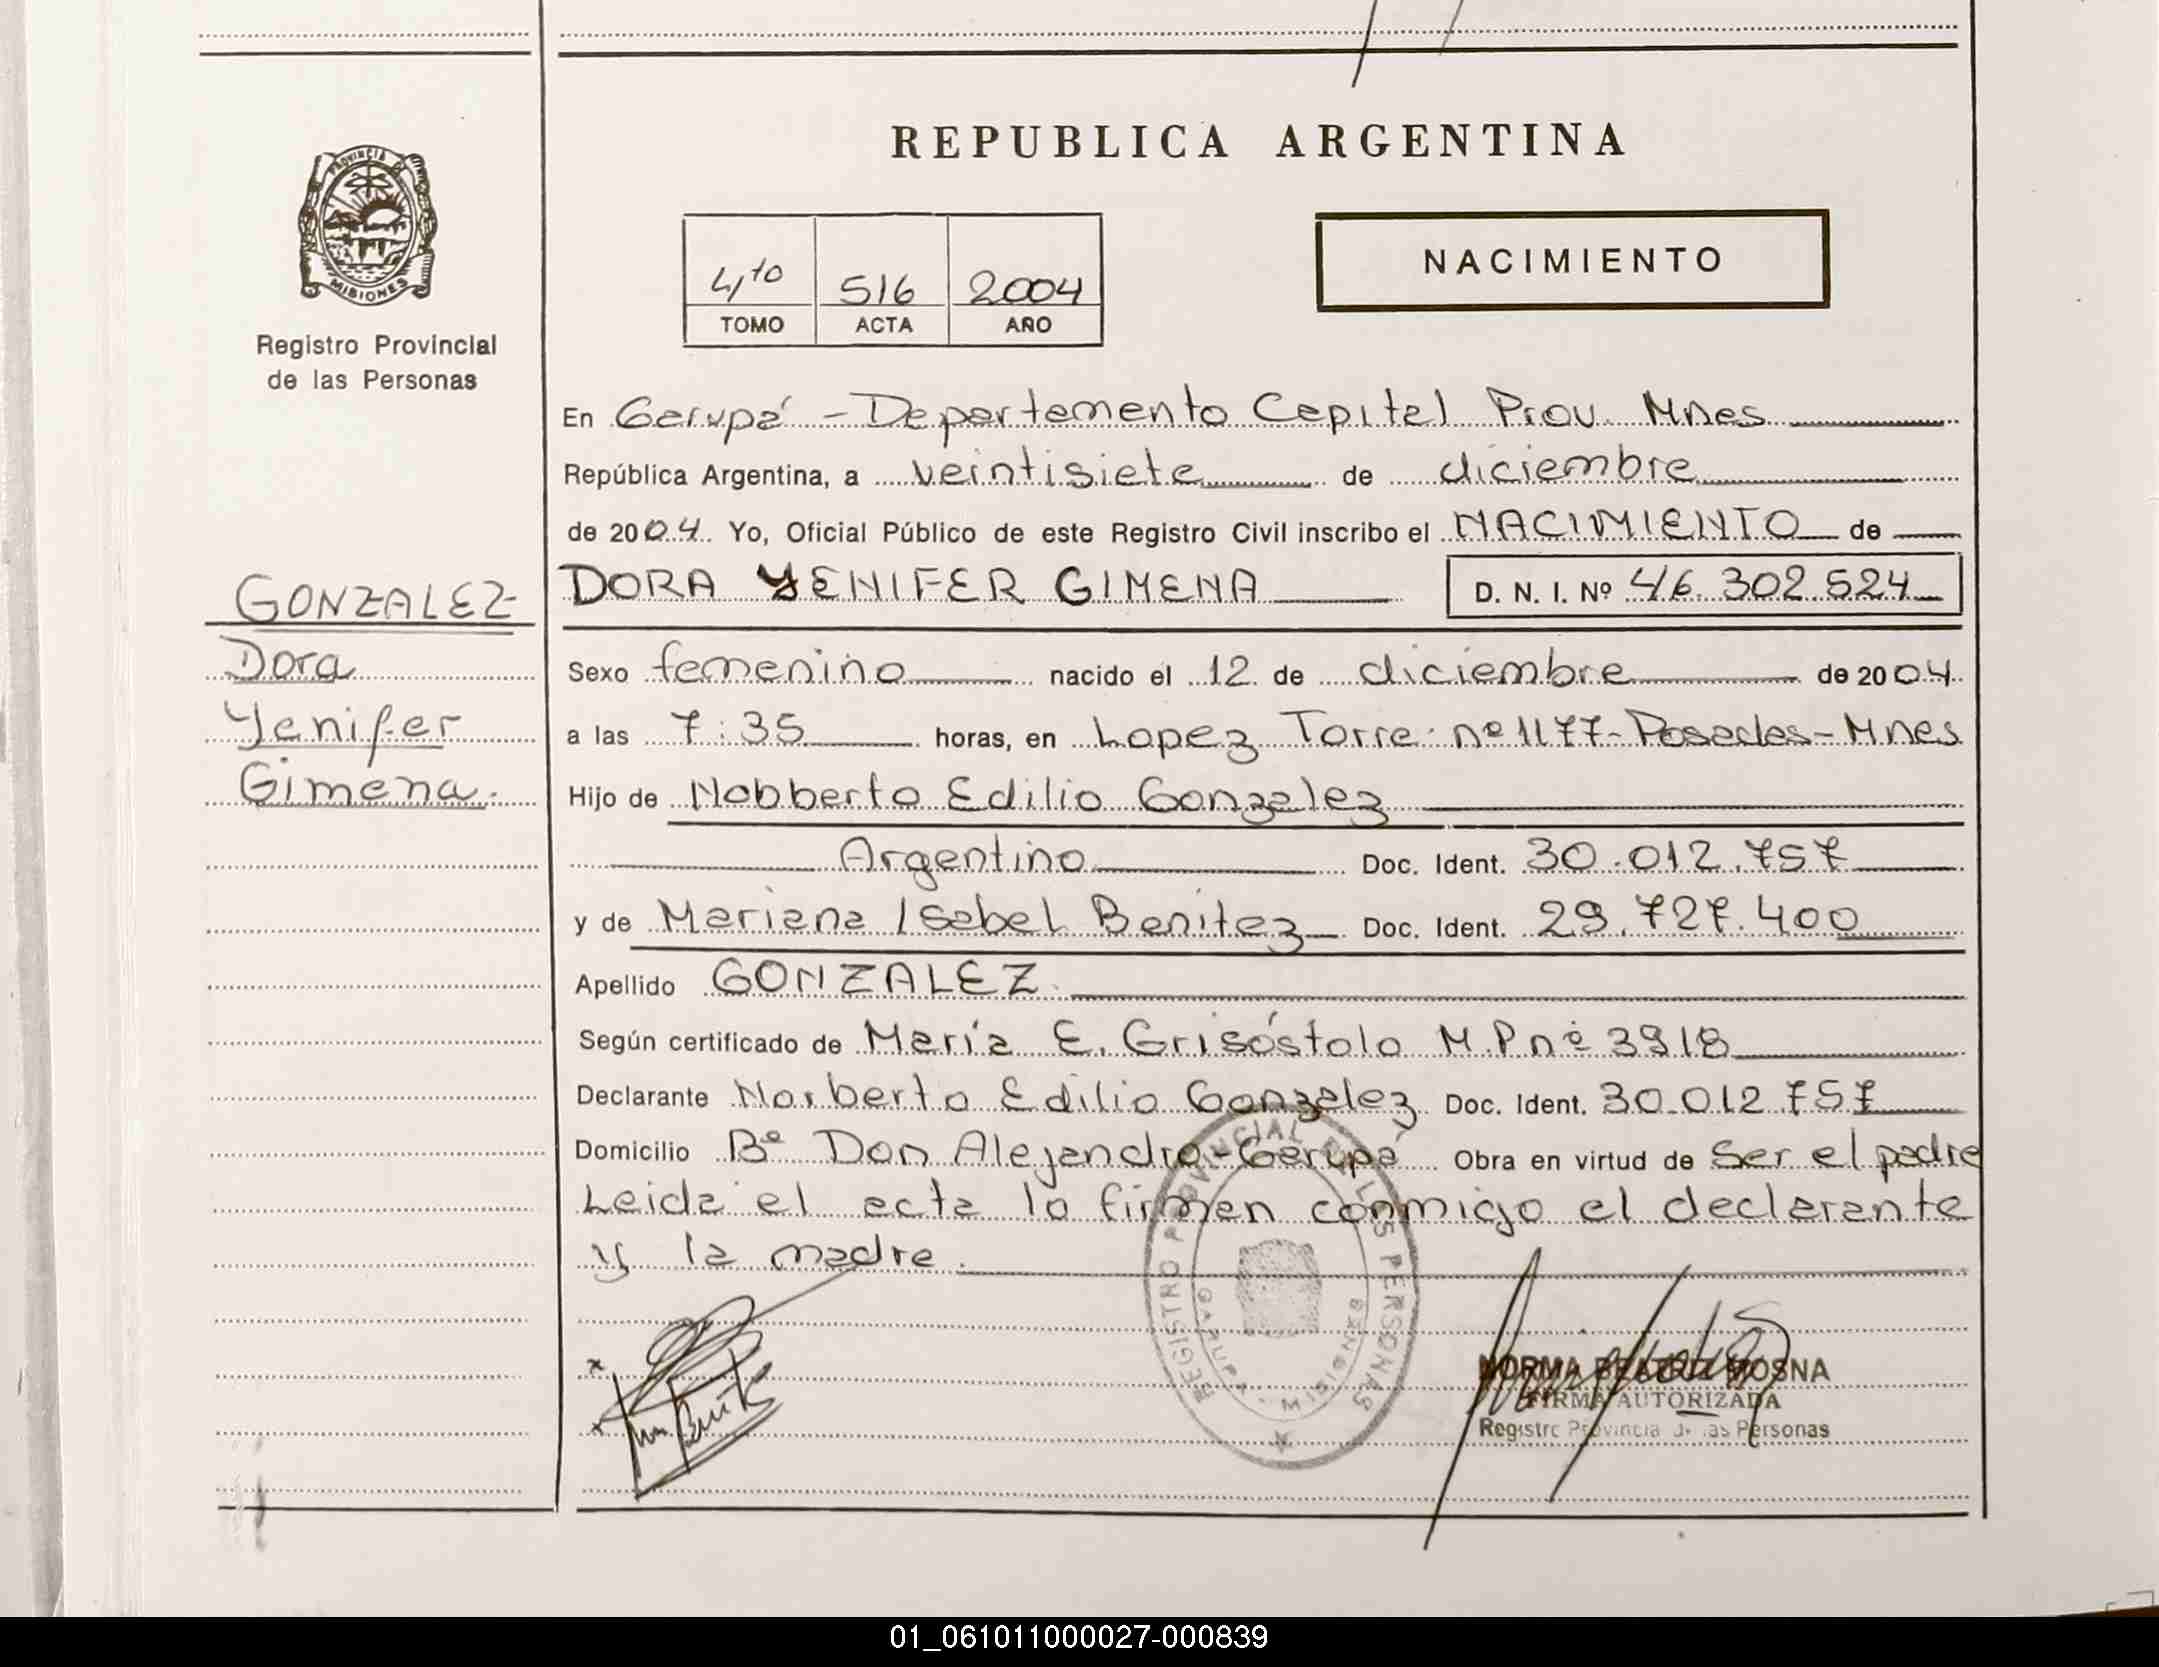 REPUBLICA ARGENTINA
PROVINCIA DE MISIONES
Registro Provincial
de las Personas
4to 516 2004
TOMO ACTA AÑO
NACIMIENTO
En Garupá - Departamento Capital Prov. Mnes
República Argentina, a veintisiete de diciembre
de 2004. Yo, Oficial Público de este Registro Civil inscribo el NACIMIENTO de
GONZALEZ
Dora
Yenifer
Gimena.
DORA YENIFER GIMENA D. N. I. Nº 46.302.524
Sexo femenino nacido el 12 de diciembre de 2004
a las 7:35 horas, en Lopez Torre nº 1177-Posadas-Mnes
Hijo de Nobberto Edilio Gonzalez
Argentino Doc. Ident. 30.012.757
y de Mariana Isabel Benitez Doc. Ident. 29.727.400
Apellido GONZALEZ
Según certificado de María E. Grisóstolo M.P nº 3918
Declarante Norberto Edilio Gonzalez Doc. Ident. 30.012.757
Domicilio Bº Don Alejandro-Garupá Obra en virtud de ser el padre
Leida el acta lo firman conmigo el declarante
y la madre.
REGISTRO PROVINCIAL DE LAS PERSONAS
GARUPA - MISIONES
NORMA BEATRIZ MOSNA
FIRMA AUTORIZADA
Registro Provincial de las Personas
01_061011000027-000839